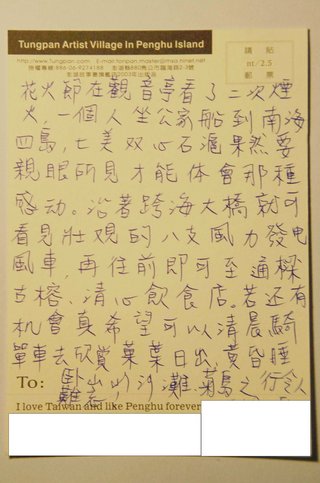 Tungpan Artist Village In Penghu Island
請貼
nt/2.5
郵票
花火節在觀音亭看了二次煙
火，一個人坐公家船到南海
四島，七美双心石滬果然要
親眼所見才能体會那種
感动。沿著跨海大橋就可
看見壯观的八支風力發电
風車，再往前即可至通樑
古榕、清心飲食店。若还有
机會真希望可以清晨騎
單車去欣賞菓葉日出、黃昏睡
To:
卧
山
沙灘。菊島之行令人
難忘
I love Taiwan and like Penghu forever